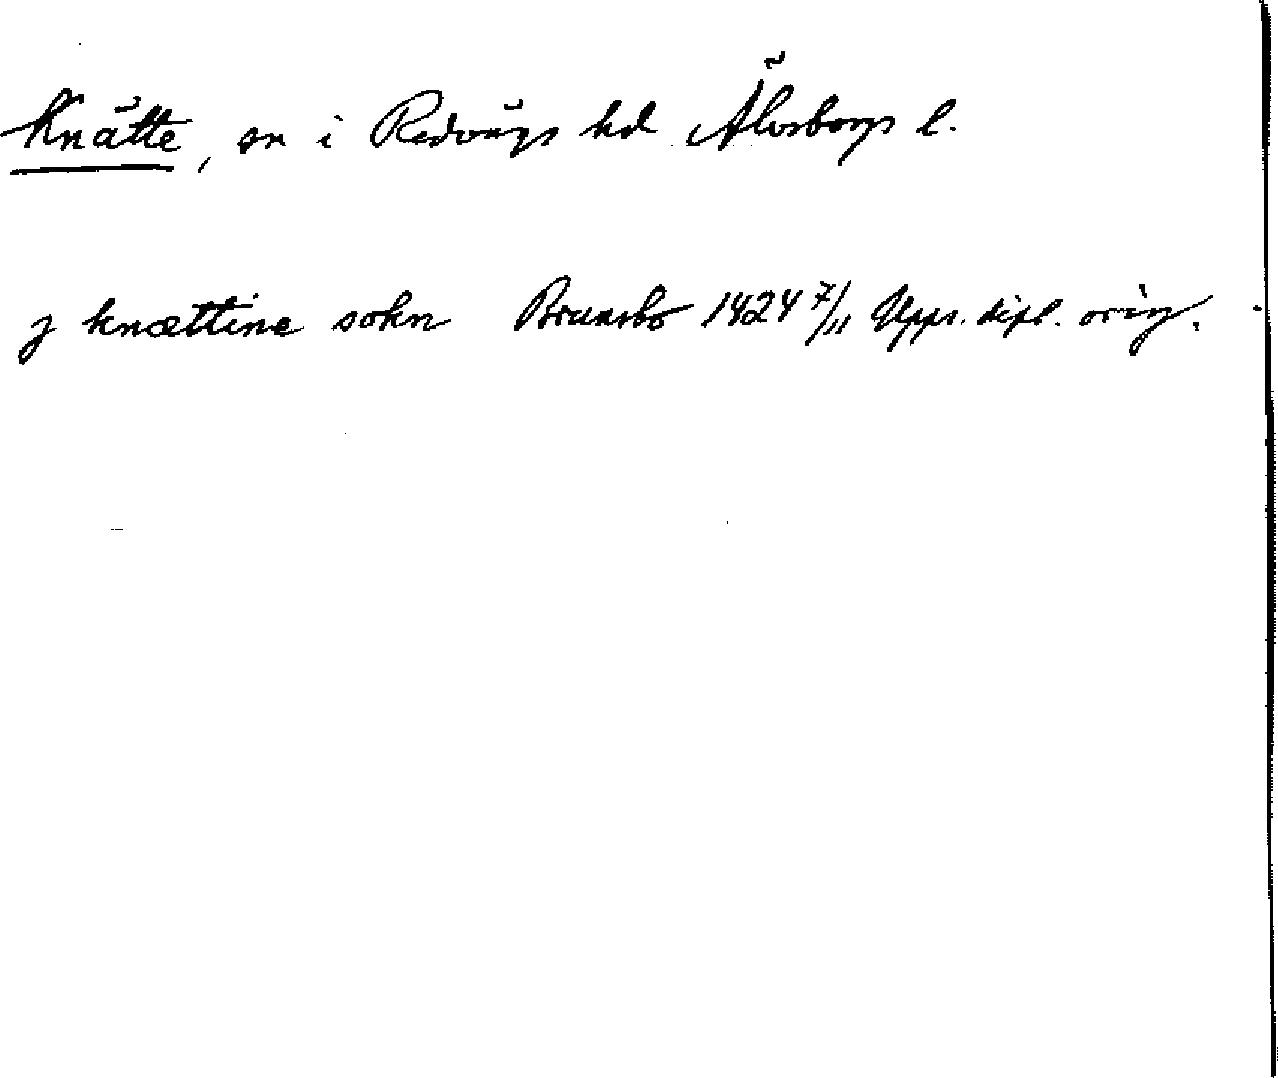 Knätte, sn i Redvägs hd Älvsborgs l.
j knættine sokn Brunsbo 1424 7/11 Upps. dipl. orig.